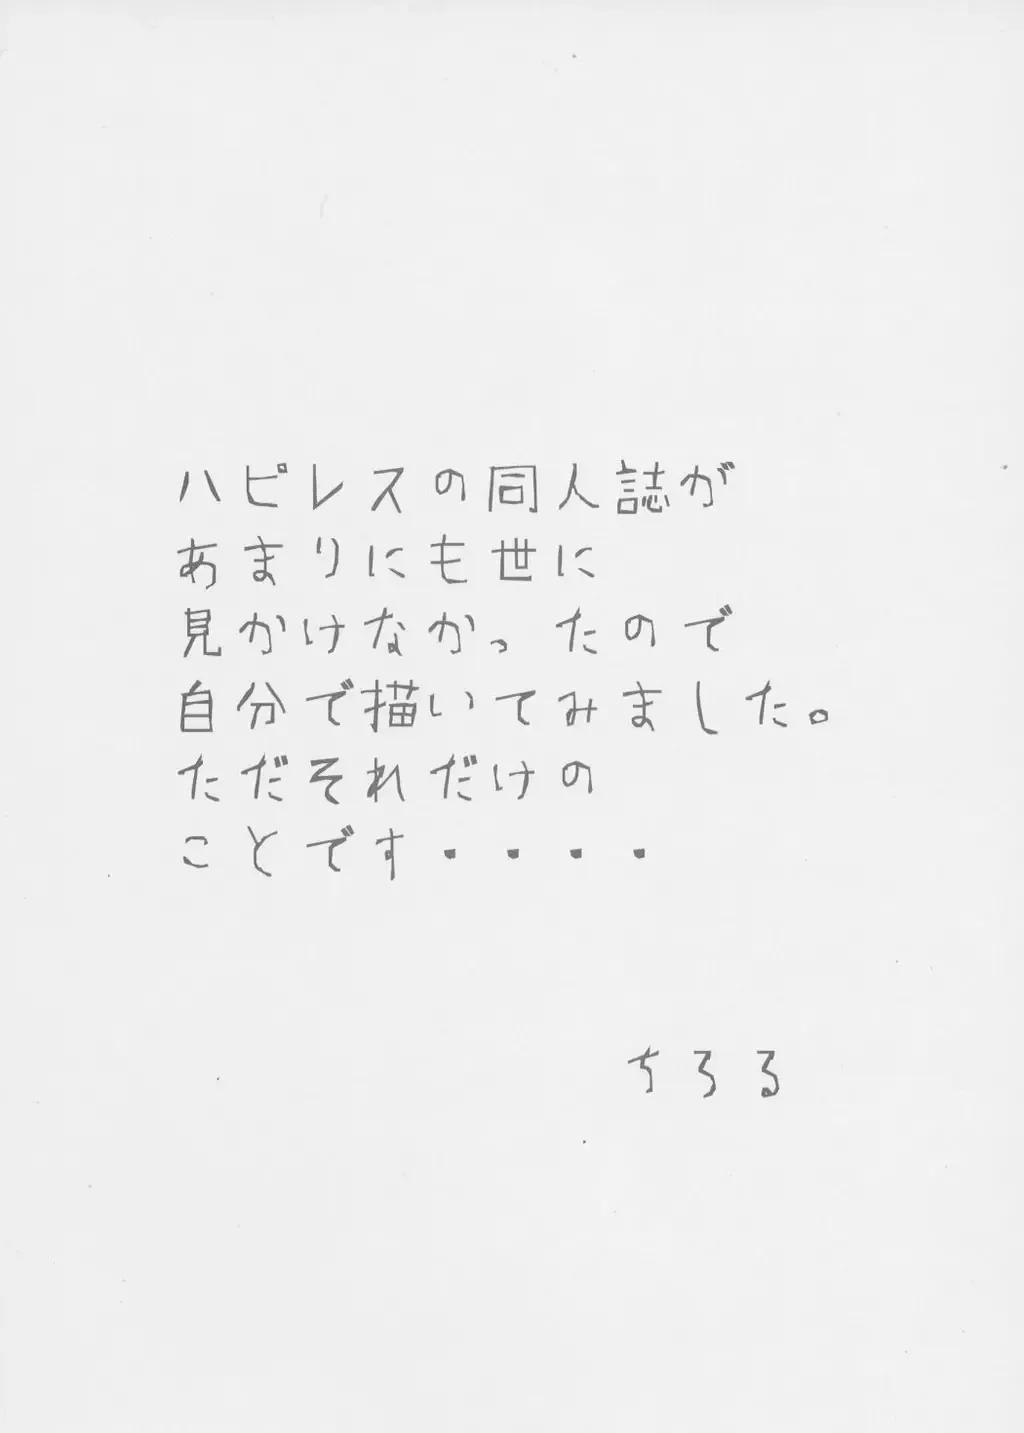 ハピレスの同人誌が
あまりにも世に
見かけなかったので
自分で描いてみました。
ただそれだけの
ことです・・・・
ちろる